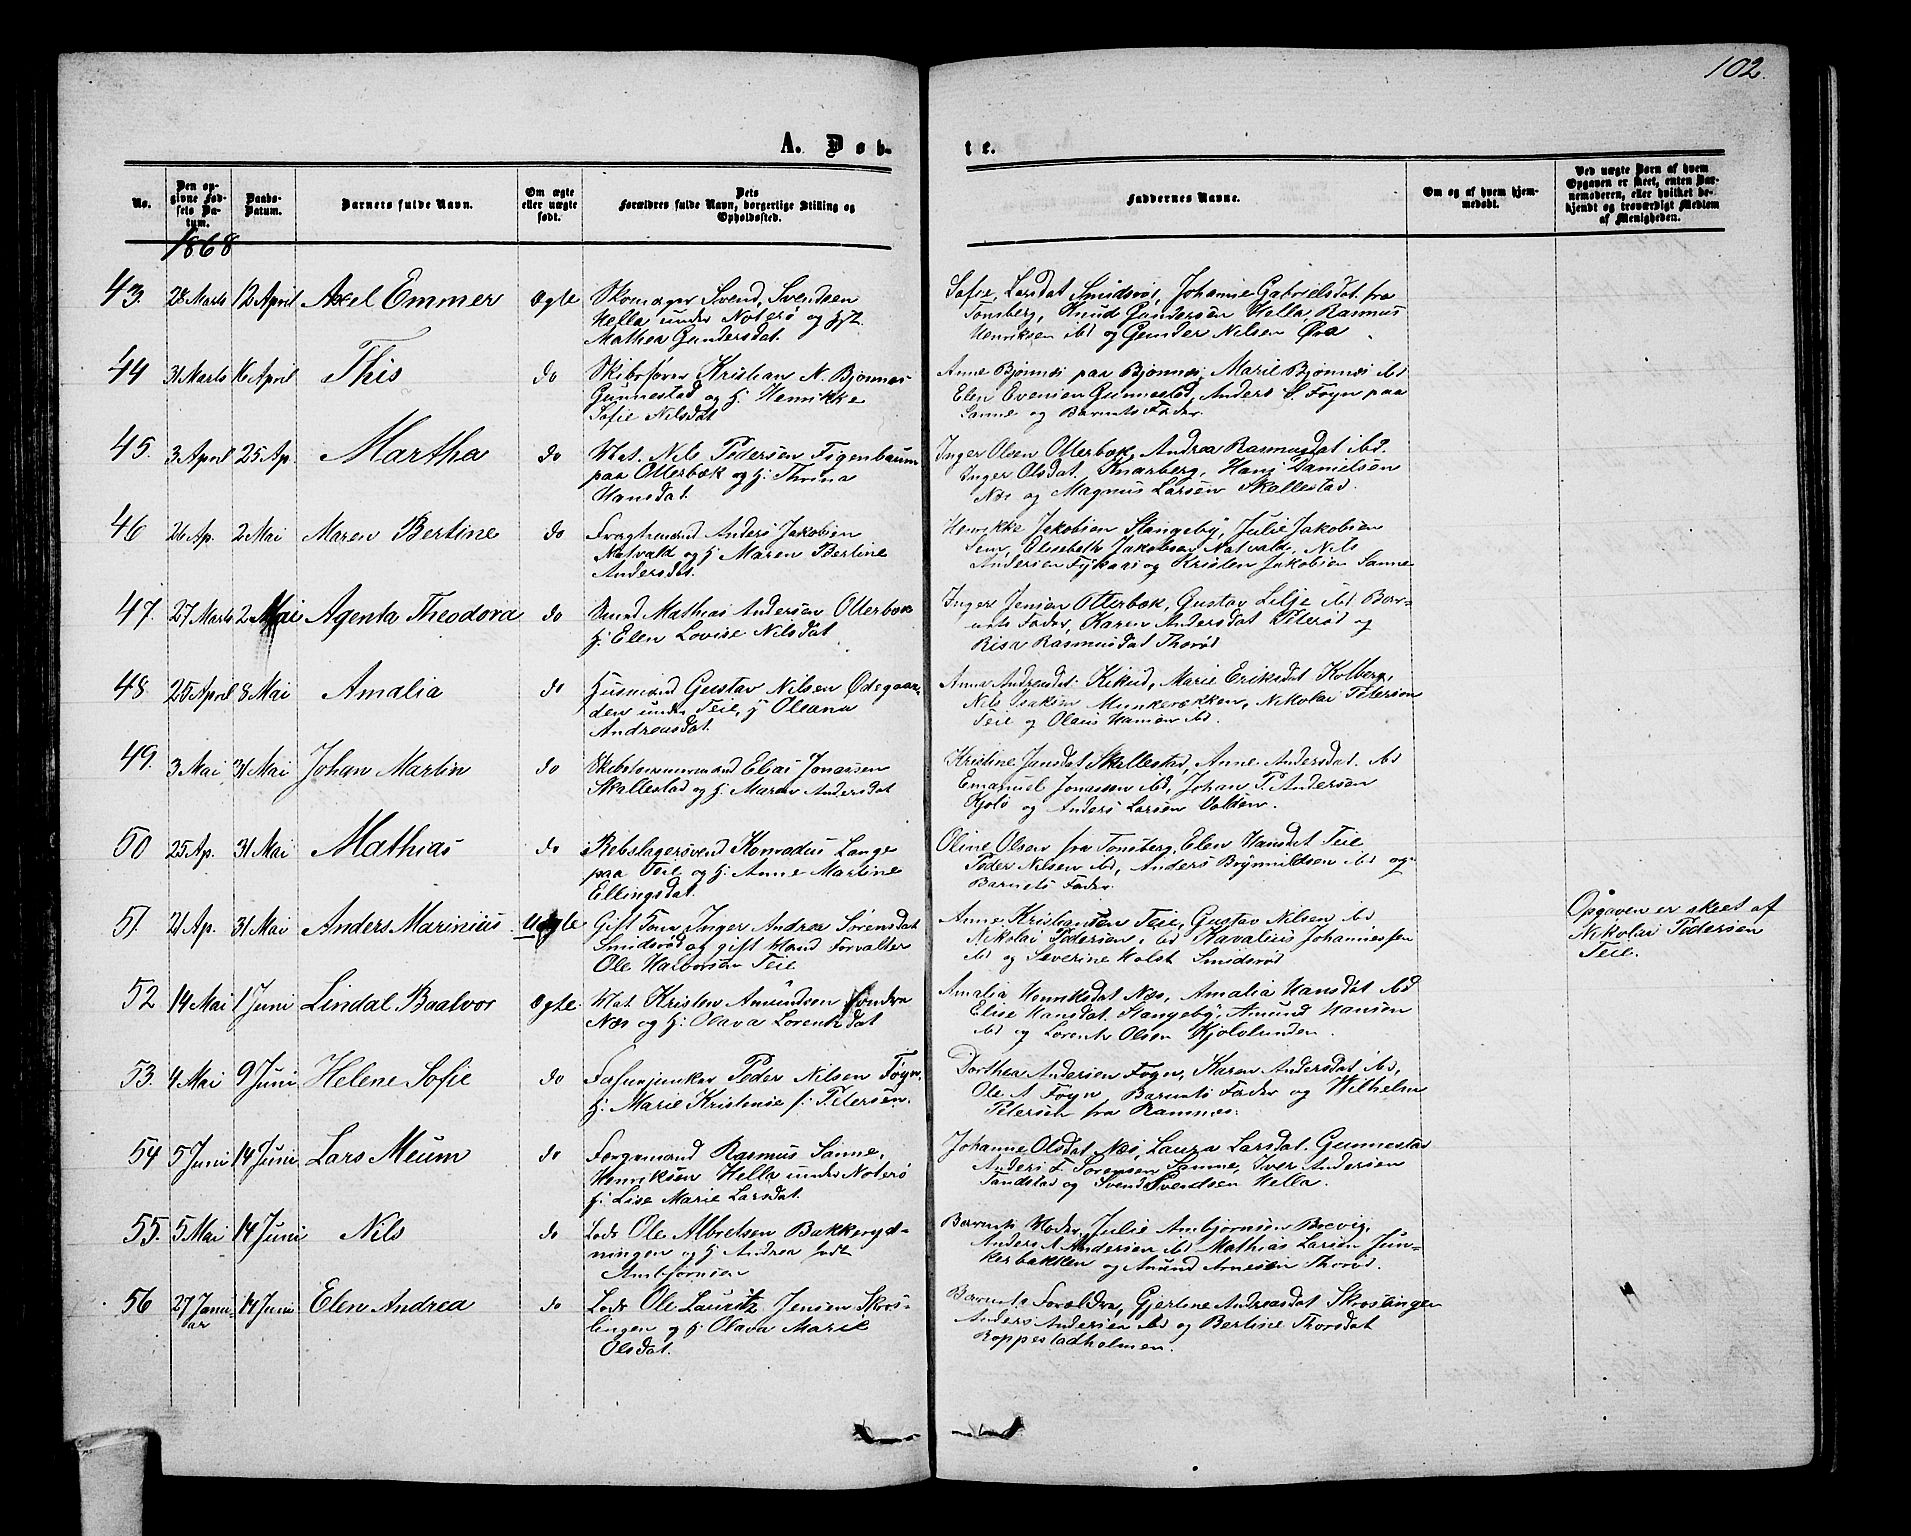 102.
A. Døb-
te.
No.
Den op-
givne Fød-
sels Da-
tum.
Daabs-
Datum.
Barnets fulde Navn.
Om ægte
eller uægte
født.
Dets
Forældres fulde Navn, borgerlige Stilling og
Opholdssted.
Faddernes Navne.
Om og af hvem hjem-
medøbt.
Ved uægte Børn af hvem
Opgaven er skeet, enten Bar-
nemoderen, eller hvilket be-
kjendt og troværdigt Medlem
af Menigheden.
1868
43. 28 Marts 12 April Axel Emmer ægte Skomager Svend Svendsen
Hella under Noterø og Hst.
Mathea Gundersdat.
Sofie Larsdat Smidsrød, Johanne Gabrielsdat. fra
Tønsberg, Knud Gundersen Hella, Rasmus
Henriksen ibd og Gunder Nilsen Øra
44 31 Marts 16 April This do Skibsfører Kristian N. Bjønnes
Gunnestad og H. Henrikke
Sofie Nilsdat
Anne Bjønnes paa Bjønnes, Marie Bjønnes ibd
Elen Evensen Gunnestad, Anders S. Foyn paa
Sanne og Barnets Fader.
45. 3 April 25 Ap. Martha do Mat. Nils Pedersen Figenbaum
paa Otterbek og H. Thrina
Hansdat.
Inger Olsen Otterbæk, Andrea Rasmusdat ibd.
Inger Olsdat. Knarberg, Hans Danielsen
Næs og Magnus Larsen Skallestad.
46 26 Ap. 2 Mai Maren Bertine do Fragtemand Anders Jakobsen
Natvald og H Maren Bertine
Andersdat.
Henrikke Jakobsen Stangeby, Julie Jakobsen
Sem, Elisabeth Jakobsen Natvald, Nils
Andersen og Kristen Jakobsen Sanne
47. 27 Marts 2 Mai Agenta Theodora do Mathias Andersen Otterbæk
H. Elen Lovise Nilsdat
Inger Jensen Otterbæk, Gustav Lilje ibd Bar-
nets Fader, Karen Andersdat Peterød og
Risa Rasmusdat Thorød
48 25 April 8 Mai Amalia do Husmand Gustav Nilsen Ødegaar-
den under Teie, H Oleana
Andreasdat.
Anna Andreasdat. Kikud, Marie Eriksdat Kolberg,
Nils Isaksen Munkerekken, Nikolai Petersen
Teie og Olaus Hansen ibd.
49. 3 Mai 31 Mai Johan Martin do Skibstømmermand Elias Jonassen
Skallestad og H. Maren Andersdat
Kristine Jansdat Skallestad, Anne Andersdat. ibd
Emanuel Jonassen ibd, Johan P. Andersen
Kjølø og Anders Larsen
50 25 Ap. 31 Mai Mathias do Rebslagersvend Konradus Lange
paa Teie og H. Anne Martine
Ellingsdat.
Oline Olsen fra Tønsberg, Elen Hansdat Teie
Peder Nilsen ibd, Anders Brynnildsen ibd og
Barnets Fader.
51. 21 Ap. 31 Mai Anders Marinius. Uægte Gift Kone Inger Andrea Sørensdat
Smidsrød og gift Mand Forvalter
Ole Halvorsen Teie
Anne Kristiansen Teie, Gustav Nilsen ibd
Nikolai Pedersen, ibd Johannessen
ibd og Severine Holst Smidsrød
Opgaven er skeet af
Nikolai Pedersen
Teie.
52 14 Mai 1 Juni Lindal Baalvor ægte. Mat. Kristen Amundsen Søndre
Næs og H. Olava Lorentzdat
Amalia Henriksdat Næs, Amalia Hansdat ibd
Elise Hansdat Stangeby, Amund Hansen
ibd og Lorents Olsen Kjølølunden.
53. 4 Mai 9 Juni Helene Sofie do Peder Nilsen Føyn,
H. Marie Kristense f. Petersen.
Dorthea Andersen Foyn, Karen Andersdat ibd,
Ole A Foyn, Barnets Fader og Wilhelm
Petersen fra Ramnæs.
54 5 Juni 14 Juni Lars Meum do Færgemand Rasmus Sanne,
Henriksen Hella under Noterø
H. Lise Marie Larsdat.
Johanne Olsdat Næs, Laura Larsdat. Gunnestad
Anders F. Sørensen Sanne, Iver Andersen
Tandstad og Svend Svendsen Hella.
55. 5 Mai 14 Juni Nils do Lods Ole Albretsen Bakkeryd-
ningen og H Andrea født
Ambjørnsen
Barnets Moder, Julie Ambjørnsen Brevig,
Anders A Andersen ibd Mathias Larsen Jun-
kerbakken og Amund Arnesen Thorød.
56 27 Janu-
ar 14 Juni Elen Andrea do Lods Ole Lauritz Jensen Skros-
lingen og H. Olava Marie
Olsdat.
Barnets Forældre, Gjertine Andreasdat Skroslingen
Anders Andersen ibd og Bertine Thorsdat
Roppestadholmen.